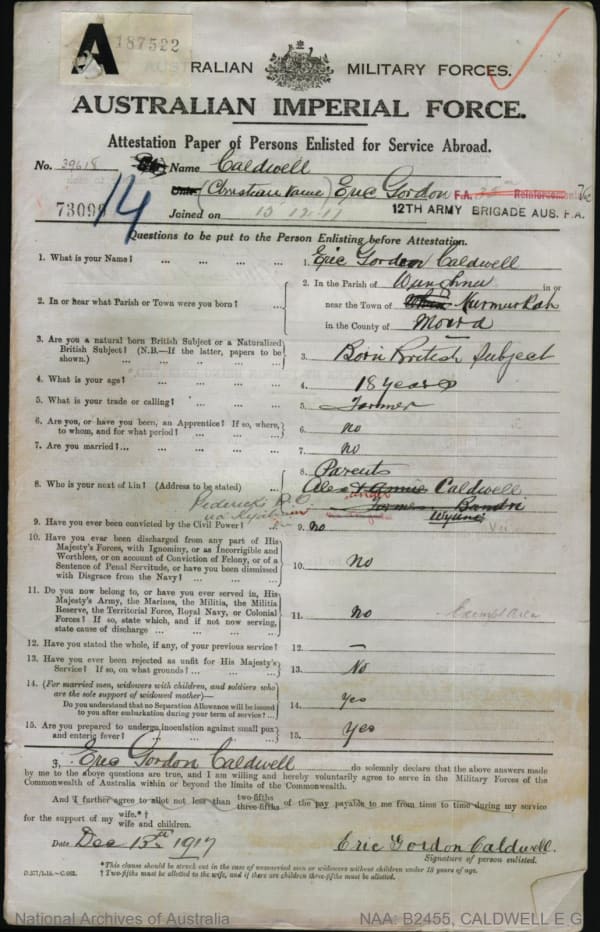 A 187522
AUSTRALIAN MILITARY FORCES.
AUSTRALIAN IMPERIAL FORCE.
Attestation Paper of Persons Enlisted for Service Abroad.
No. 39618 Name Caldwell
(Christian Name) Eric Gordon F.A. Reinforcements
73099 14 Joined on 12TH ARMY BRIGADE AUS. F.A.
Questions to be put to the Person Enlisting before Attestation.
1. What is your Name? ... ... ... ... 1. Eric Gordon Caldwell
2. In or near what Parish or Town were you born? ... 2. In the Parish of Wunghnu in or
near the Town of Nurmurkah
in the County of Moira
3. Are you a natural born British Subject or a Naturalized
British Subject? (N.B.—If the latter, papers to be
shown.) ... ... ... ... ... 3. Born British Subject
4. What is your age? ... ... ... ... 4. 18 years
5. What is your trade or calling? ... ... ... 5. Farmer
6. Are you, or have you been, an Apprentice? If so, where,
to whom, and for what period? ... ... ... 6. no
7. Are you married?... ... ... ... ... 7. no
8. Who is your next of kin? (Address to be stated) ... 8. Parents
Alex & Annie Caldwell
Farmer
9. Have you ever been convicted by the Civil Power? 9. no
10. Have you ever been discharged from any part of His
Majesty's Forces, with Ignominy, or as Incorrigible and
Worthless, or on account of Conviction of Felony, or of a
Sentence of Penal Servitude, or have you been dismissed
with Disgrace from the Navy? ... ... ... 10. no
11. Do you now belong to, or have you ever served in, His
Majesty's Army, the Marines, the Militia, the Militia
Reserve, the Territorial Force, Royal Navy, or Colonial
Forces? If so, state which, and if not now serving,
state cause of discharge ... ... ... ... 11. no Exempt Area
12. Have you stated the whole, if any, of your previous service? 12. —
13. Have you ever been rejected as unfit for His Majesty's
Service? If so, on what grounds? ... ... ... 13. No
14. (For married men, widowers with children, and soldiers who
are the sole support of widowed mother)—
Do you understand that no Separation Allowance will be issued
to you after embarkation during your term of service? ... 14. Yes
15. Are you prepared to undergo inoculation against small pox
and enteric fever? ... ... ... ... 15. Yes
I, Eric Gordon Caldwell do solemnly declare that the above answers made
by me to the above questions are true, and I am willing and hereby voluntarily agree to serve in the Military Forces of the
Commonwealth of Australia within or beyond the limits of the Commonwealth.
And I further agree to allot not less than two-fifths three-fifths of the pay payable to me from time to time during my service
for the support of my wife.*†
wife and children.
Date Dec 13th 1917 Eric Gordon Caldwell.
Signature of person enlisted.
*This clause should be struck out in the case of unmarried men or widowers without children under 18 years of age.
† Two-fifths must be allotted to the wife, and if there are children three-fifths must be allotted.
National Archives of Australia NAA: B2455, CALDWELL E G